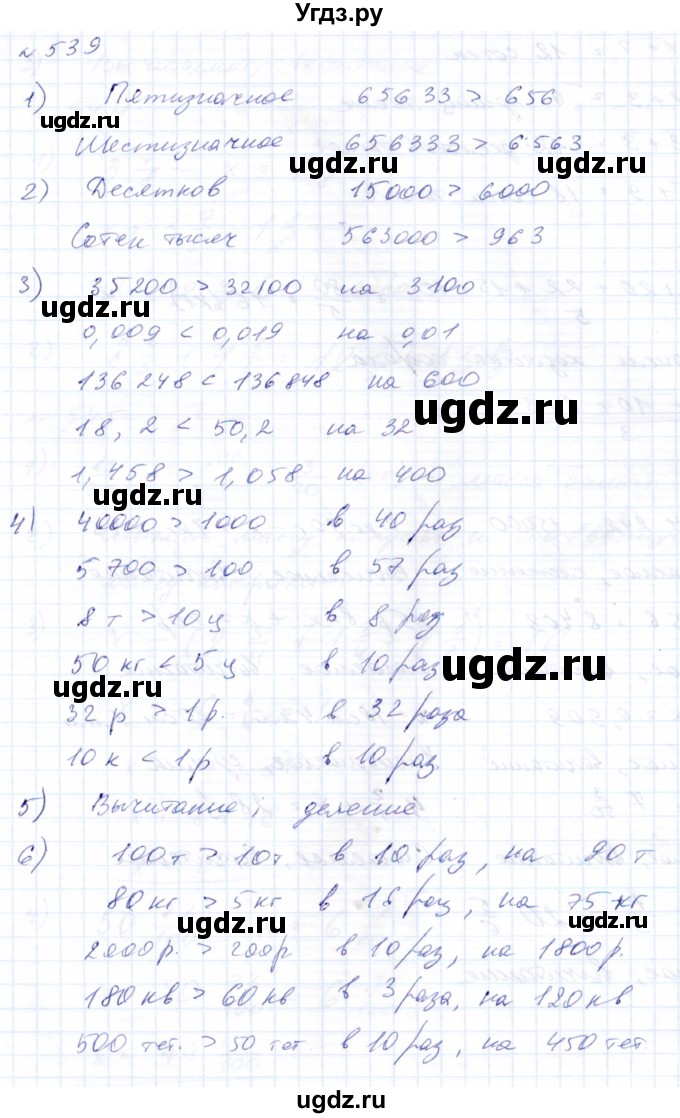 Угдз.ру
№539
1) Пятизначное 65633 > 656
ugdz.ru
Шестизначное 656333 > 6563
ugdz.ru
2) Десятков 15000 > 6000
ugdz.ru
Сотен тысяч 563000 > 963
3) 35200 > 32100 на 3100
ugdz.ru
0,009 < 0,019 на 0,01
136248 < 136848 на 600
ugdz.ru
18,2 < 50,2 на 32
1,458 > 1,058 на 400
ugdz.ru
4) 40000 > 1000 в 40 раз
5700 > 100 в 57 раз
8 т > 10 ц в 8 раз
50 кг < 5 ц в 10 раз
ugdz.ru
ugdz.ru
32 р > 1 р. в 32 раза
10 к < 1 р в 10 раз
5) Вычитание, деление
6) 100т > 10т в 10 раз, на 90 т
80 кг > 5 кг в 16 раз, на 75 кг
ugdz.ru
ugdz.ru
2000р. > 200р в 10 раз, на 1800р.
180 кв > 60 кв в 3 раза, на 120 кв
ugdz.ru
500 тет. > 50 тет. в 10 раз, на 450 тет.
ugdz.ru